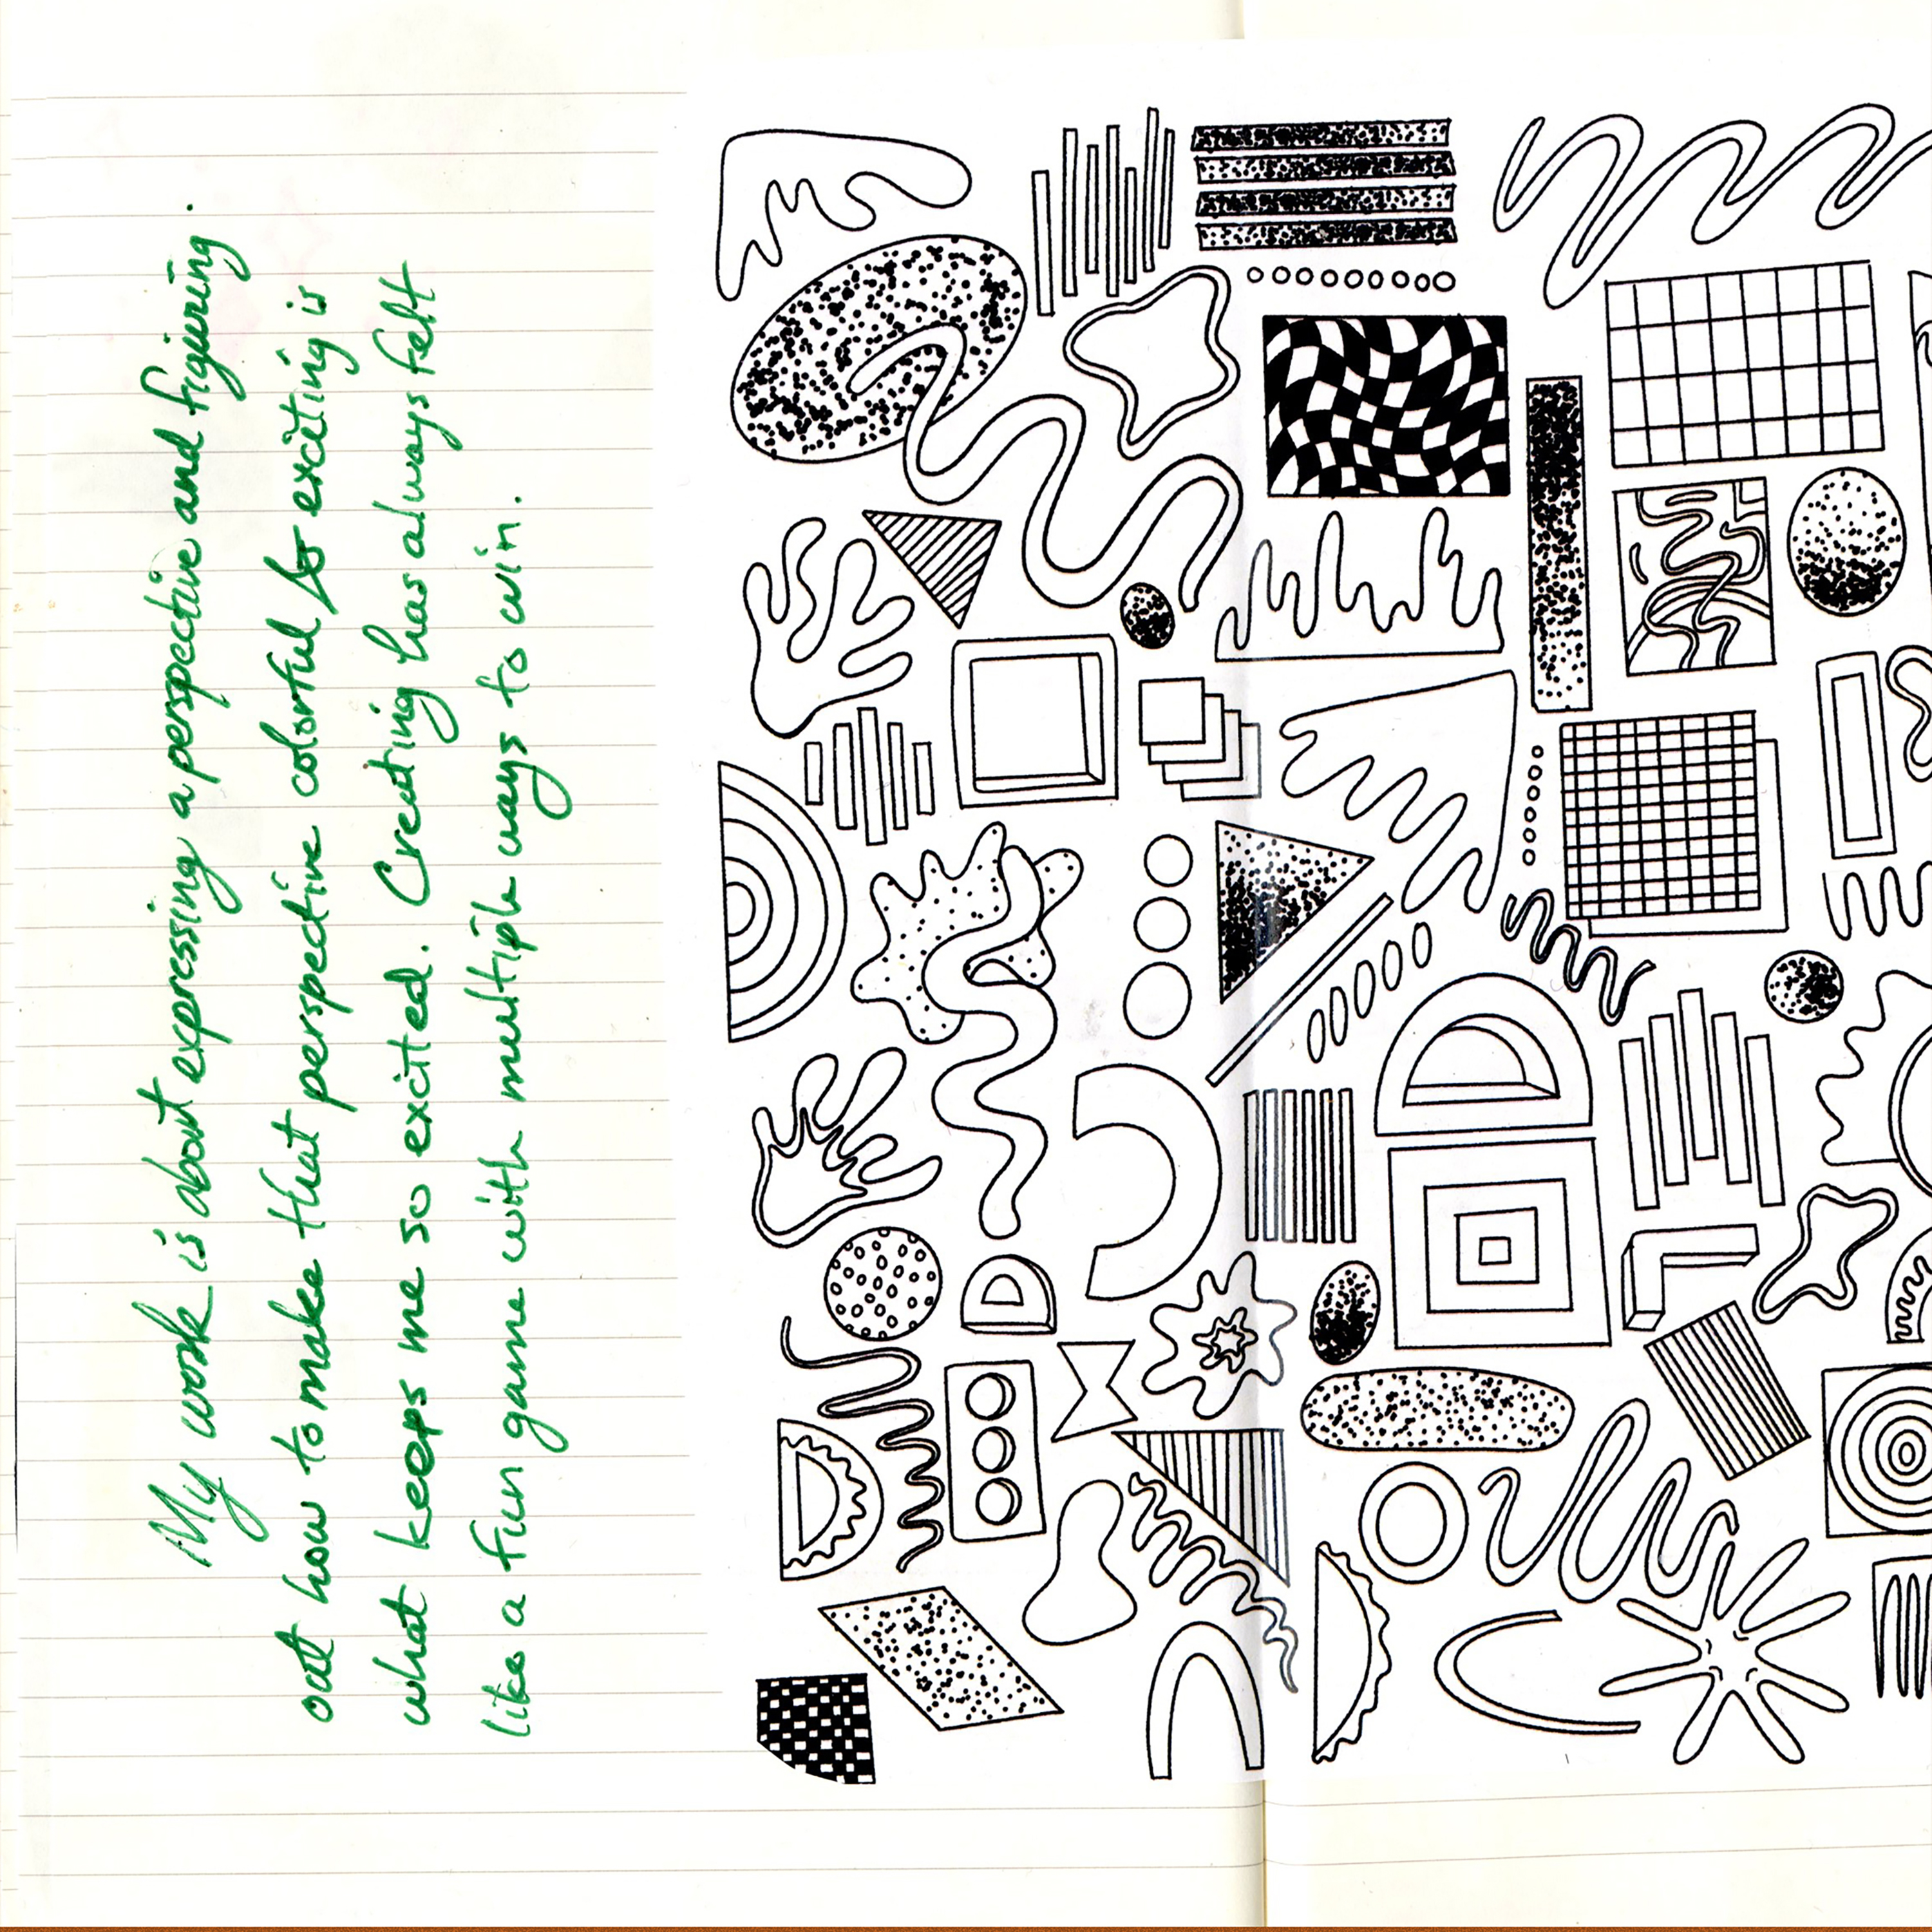 My work is about expressing a perspective and figuring.
out how to make that perspective colorful & exciting is
what keeps me so excited. Creating has always felt
like a fun game with multiple ways to win.